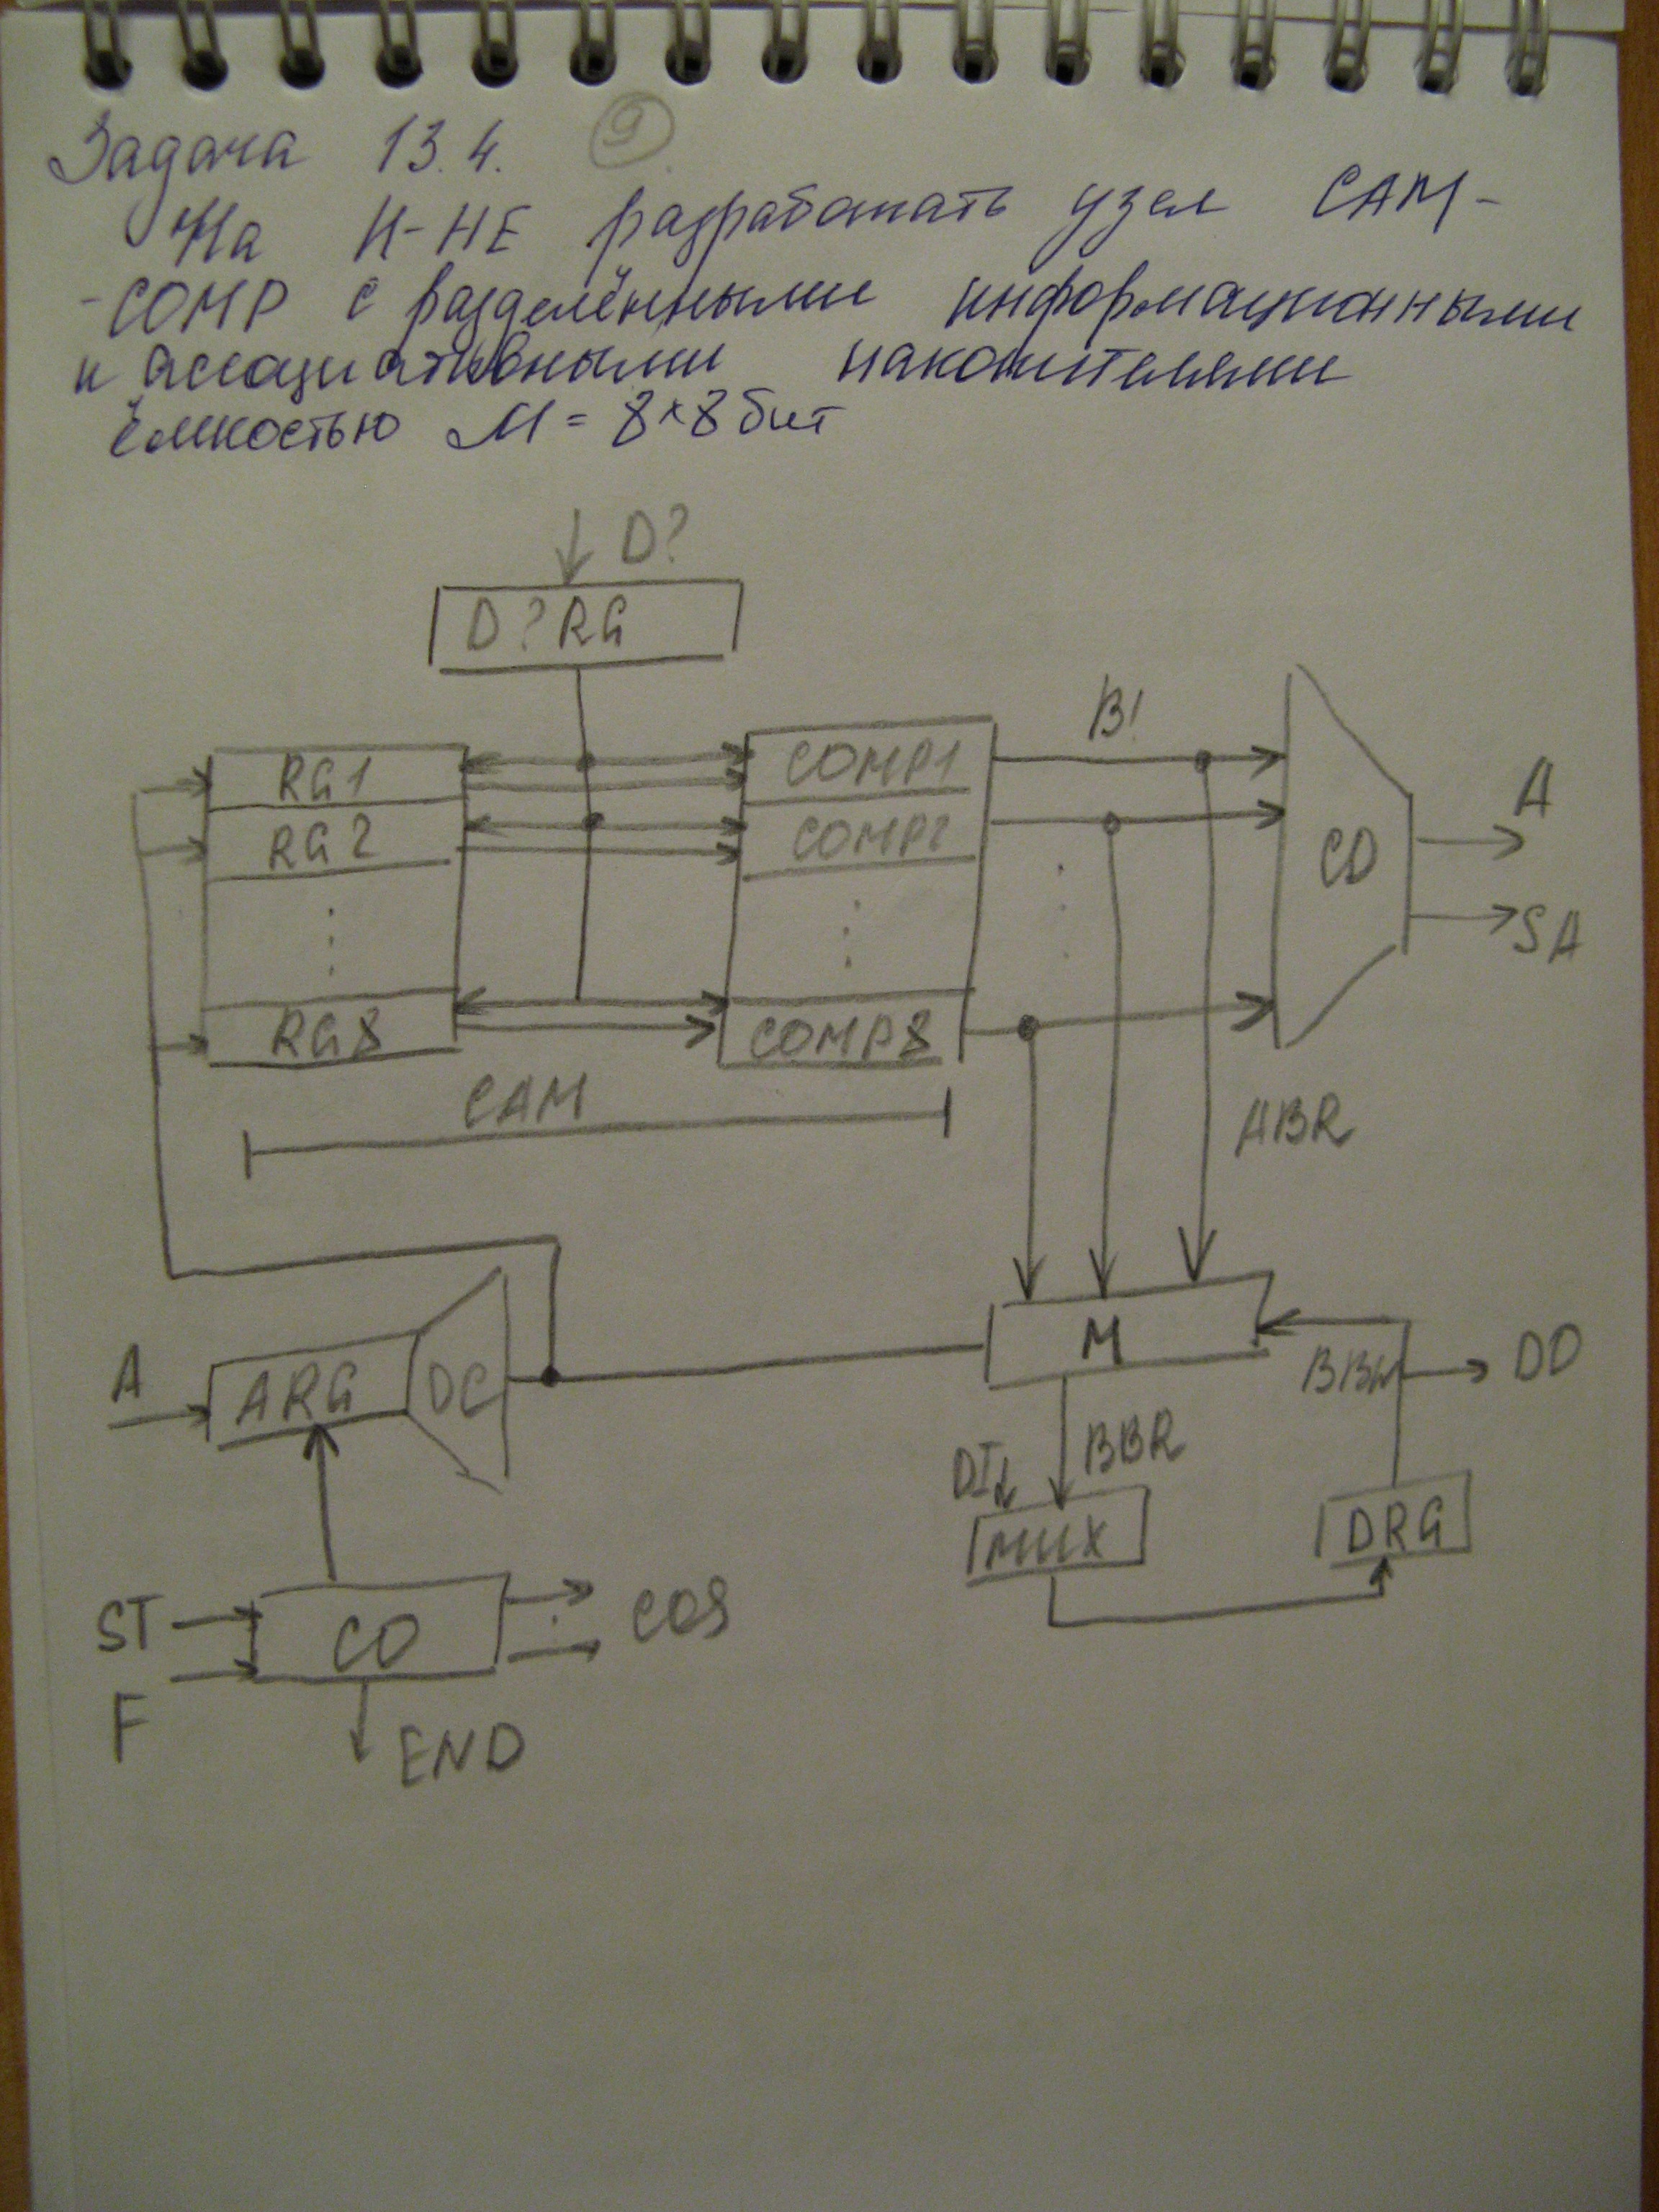 Задача 13.4. 9
На И-НЕ разработать узел САМ-
-COMP с разделёнными информационными
и ассоциативными накопителями
ёмкостью M = 8×8 бит
D?
D?RG
B!
RG1
COMP1
RG2
COMP2
A
CD
SA
RG8
COMP8
CAM
ABR
M
A
ARG
DC
BBW
DO
DI
BBR
MUX
DRG
ST
CO
COS
F
END